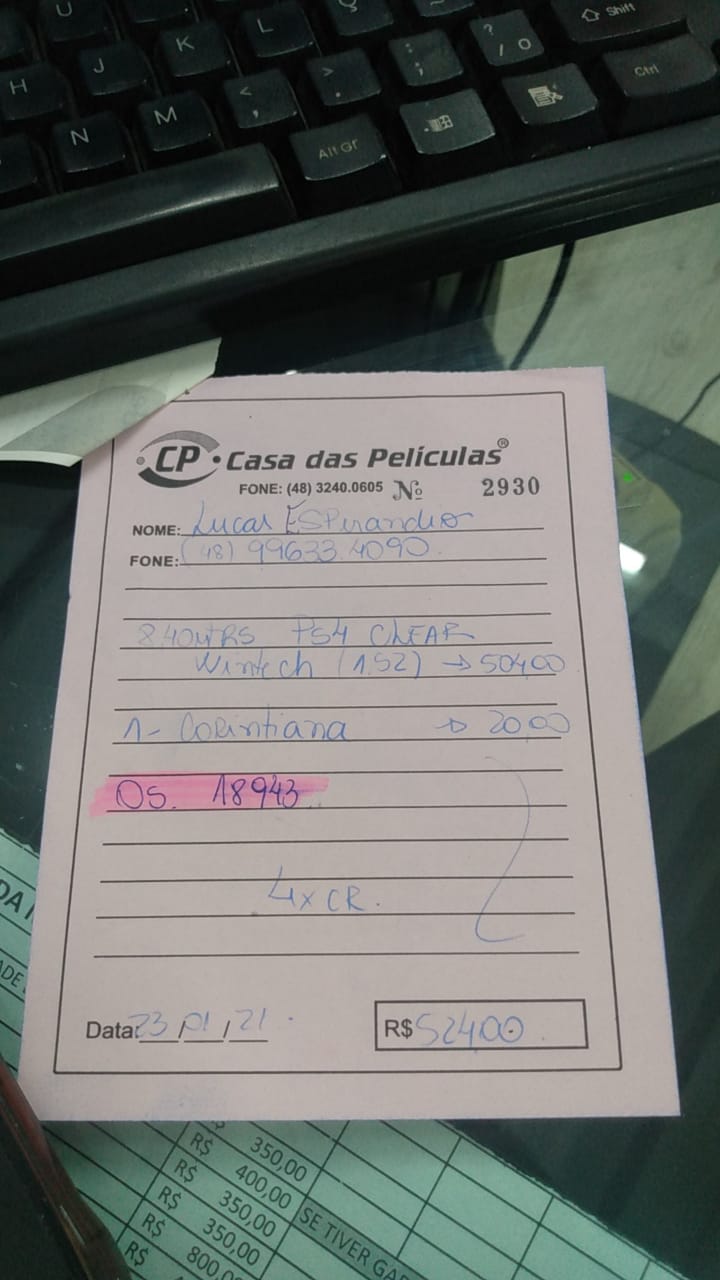 U
L
Ç
Shift
H
J
K
>
.
:
;
?
/
O
Ctrl
N
M
<
,
Alt Gr
CP Casa das Películas®
FONE: (48) 3240.0605 Nº 2930
NOME: Lucas Esperandio
FONE: (48) 99633.4090
8.40MTRS PS4 CLEAR
Wintech (1.52) → 504,00
1- Corintiana → 20,00
OS. 18943
4x CR.
Data: 23/01/21
R$ 524,00
R$ 350,00
R$ 400,00
R$ 350,00
R$ 350,00
R$ 800,00
SE TIVER GAR